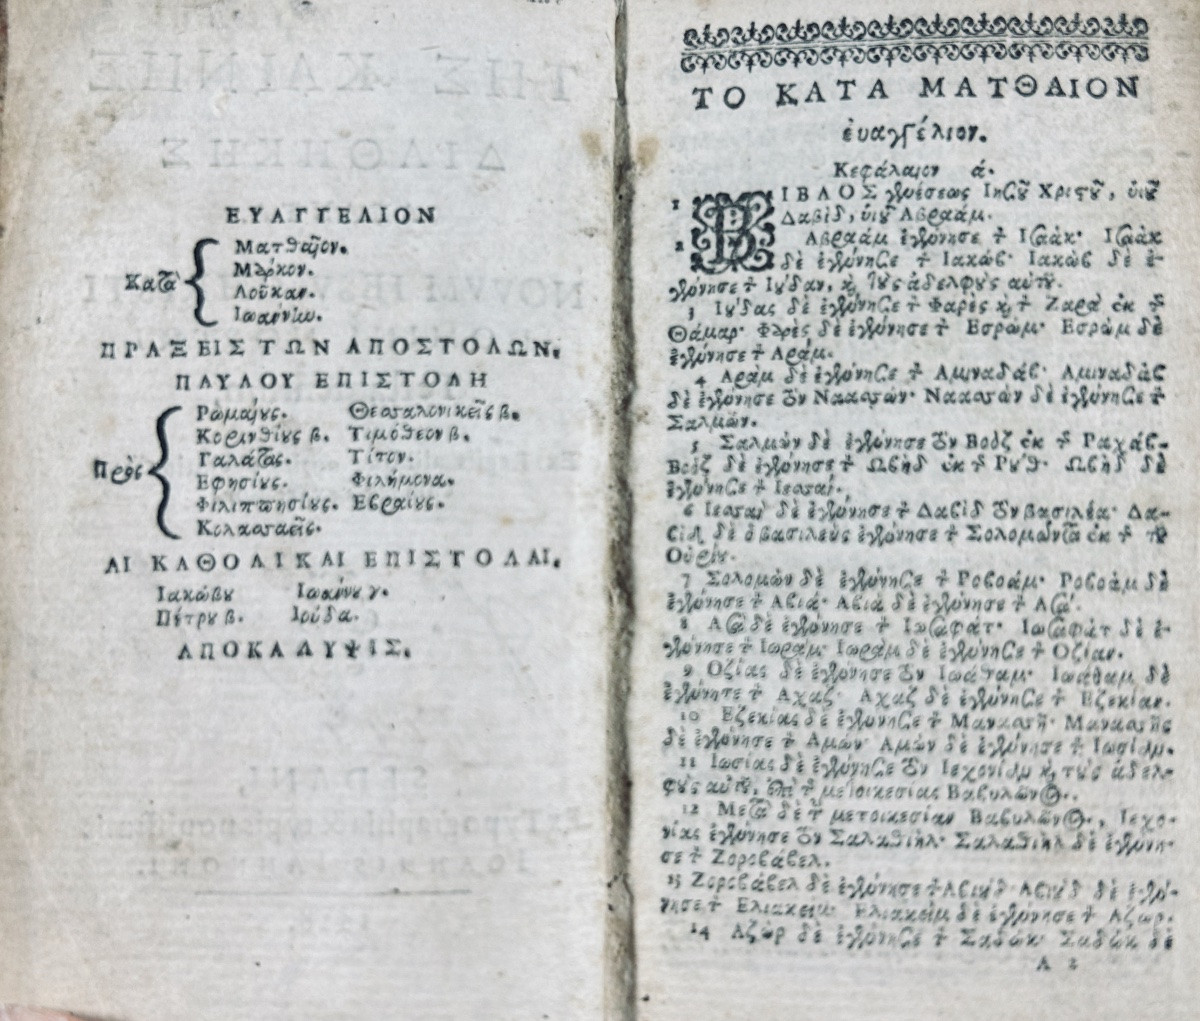 ΕΥΑΓΓΕΛΙΟΝ
Κατὰ
Ματθαῖον.
Μάρκον.
Λοῦκαν.
Ἰωάννην.
ΠΡΑΞΕΙΣ ΤΩΝ ΑΠΟΣΤΟΛΩΝ.
ΠΑΥΛΟΥ ΕΠΙΣΤΟΛΗ
Πρὸς
Ρωμαίους. Θεσσαλονικεῖς β.
Κορινθίους β. Τιμόθεον β.
Γαλάτας. Τίτον.
Εφησίους. Φιλήμονα.
Φιλιππησίους. Εβραίους.
Κολασσαεῖς.
ΑΙ ΚΑΘΟΛΙΚΑΙ ΕΠΙΣΤΟΛΑΙ.
Ιακώβου Ιωάννου γ.
Πέτρου β. Ιούδα.
ΑΠΟΚΑΛΥΨΙΣ.
ΤΟ ΚΑΤΑ ΜΑΤΘΑΙΟΝ
ἐυαγγέλιον.
Κεφάλαιον ά.
1 ΒΙΒΛΟΣ γενέσεως Ιησοῦ Χριστοῦ, ὑιοῦ
Δαβὶδ, ὑιοῦ Αβραάμ.
2 Αβραάμ ἐγέννησε τὸν Ισαάκ· Ισαὰκ
δὲ ἐγέννησε τὸν Ιακώβ· Ιακὼβ δὲ ἐ-
γέννησε τὸν Ιούδαν, καὶ τοὺς ἀδελφοὺς αὐτοῦ.
3 Ιούδας δὲ ἐγέννησε τὸν Φαρὲς καὶ τὸν Ζαρὰ ἐκ τῆς
Θάμαρ· Φαρὲς δὲ ἐγέννησε τὸν Εσρώμ· Εσρὼμ δὲ
ἐγέννησε τὸν Αράμ.
4 Αρὰμ δὲ ἐγέννησε τὸν Αμιναδάβ· Αμιναδὰβ
δὲ ἐγέννησε τὸν Ναασσών· Ναασσὼν δὲ ἐγέννησε τὸν
Σαλμών.
5 Σαλμὼν δὲ ἐγέννησε τὸν Βοὸζ ἐκ τῆς Ραχάβ·
Βοὸζ δὲ ἐγέννησε τὸν Ωβὴδ ἐκ τῆς Ρούθ· Ωβὴδ δὲ
ἐγέννησε τὸν Ιεσσαί.
6 Ιεσσαὶ δὲ ἐγέννησε τὸν Δαβὶδ τὸν βασιλέα· Δα-
βὶδ δὲ ὁ βασιλεὺς ἐγέννησε τὸν Σολομῶντα ἐκ τῆς τοῦ
Οὐρίου.
7 Σολομὼν δὲ ἐγέννησε τὸν Ροβοάμ· Ροβοὰμ δὲ
ἐγέννησε τὸν Αβιά· Αβιὰ δὲ ἐγέννησε τὸν Ασά.
8 Ασὰ δὲ ἐγέννησε τὸν Ιωσαφάτ· Ιωσαφὰτ δὲ ἐ-
γέννησε τὸν Ιωράμ· Ιωρὰμ δὲ ἐγέννησε τὸν Οζίαν.
9 Οζίας δὲ ἐγέννησε τὸν Ιωάθαμ· Ιωάθαμ δὲ
ἐγέννησε τὸν Αχαζ· Αχαζ δὲ ἐγέννησε τὸν Εζεκίαν.
10 Εζεκίας δὲ ἐγέννησε τὸν Μανασσῆ· Μανασσῆς
δὲ ἐγέννησε τὸν Αμών· Αμὼν δὲ ἐγέννησε τὸν Ιωσίαν.
11 Ιωσίας δὲ ἐγέννησε τὸν Ιεχονίαν καὶ τοὺς ἀδελ-
φοὺς αὐτοῦ, ἐπὶ τῆς μετοικεσίας Βαβυλῶνος.
12 Μετὰ δὲ τὴν μετοικεσίαν Βαβυλῶνος, Ιεχο-
νίας ἐγέννησε τὸν Σαλαθιήλ· Σαλαθιὴλ δὲ ἐγέννη-
σε τὸν Ζοροβάβελ.
13 Ζοροβάβελ δὲ ἐγέννησε τὸν Αβιούδ· Αβιοὺδ δὲ ἐγέν-
νησε τὸν Ελιακείμ· Ελιακεὶμ δὲ ἐγέννησε τὸν Αζώρ.
14 Αζὼρ δὲ ἐγέννησε τὸν Σαδώκ· Σαδὼκ δὲ
A 2